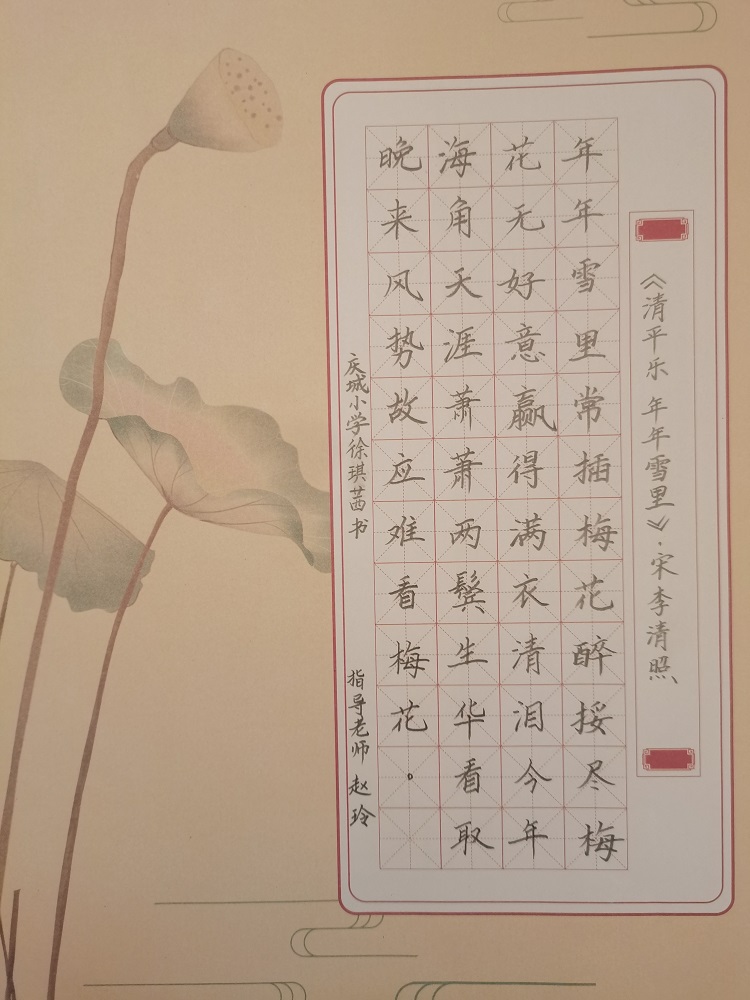 《清平乐 年年雪里》·宋李清照
年年雪里常插梅花醉挼尽梅
花无好意赢得满衣清泪今年
海角天涯萧萧两鬓生华看取
晚来风势故应难看梅花。
庆城小学徐琪茜书
指导老师 赵玲